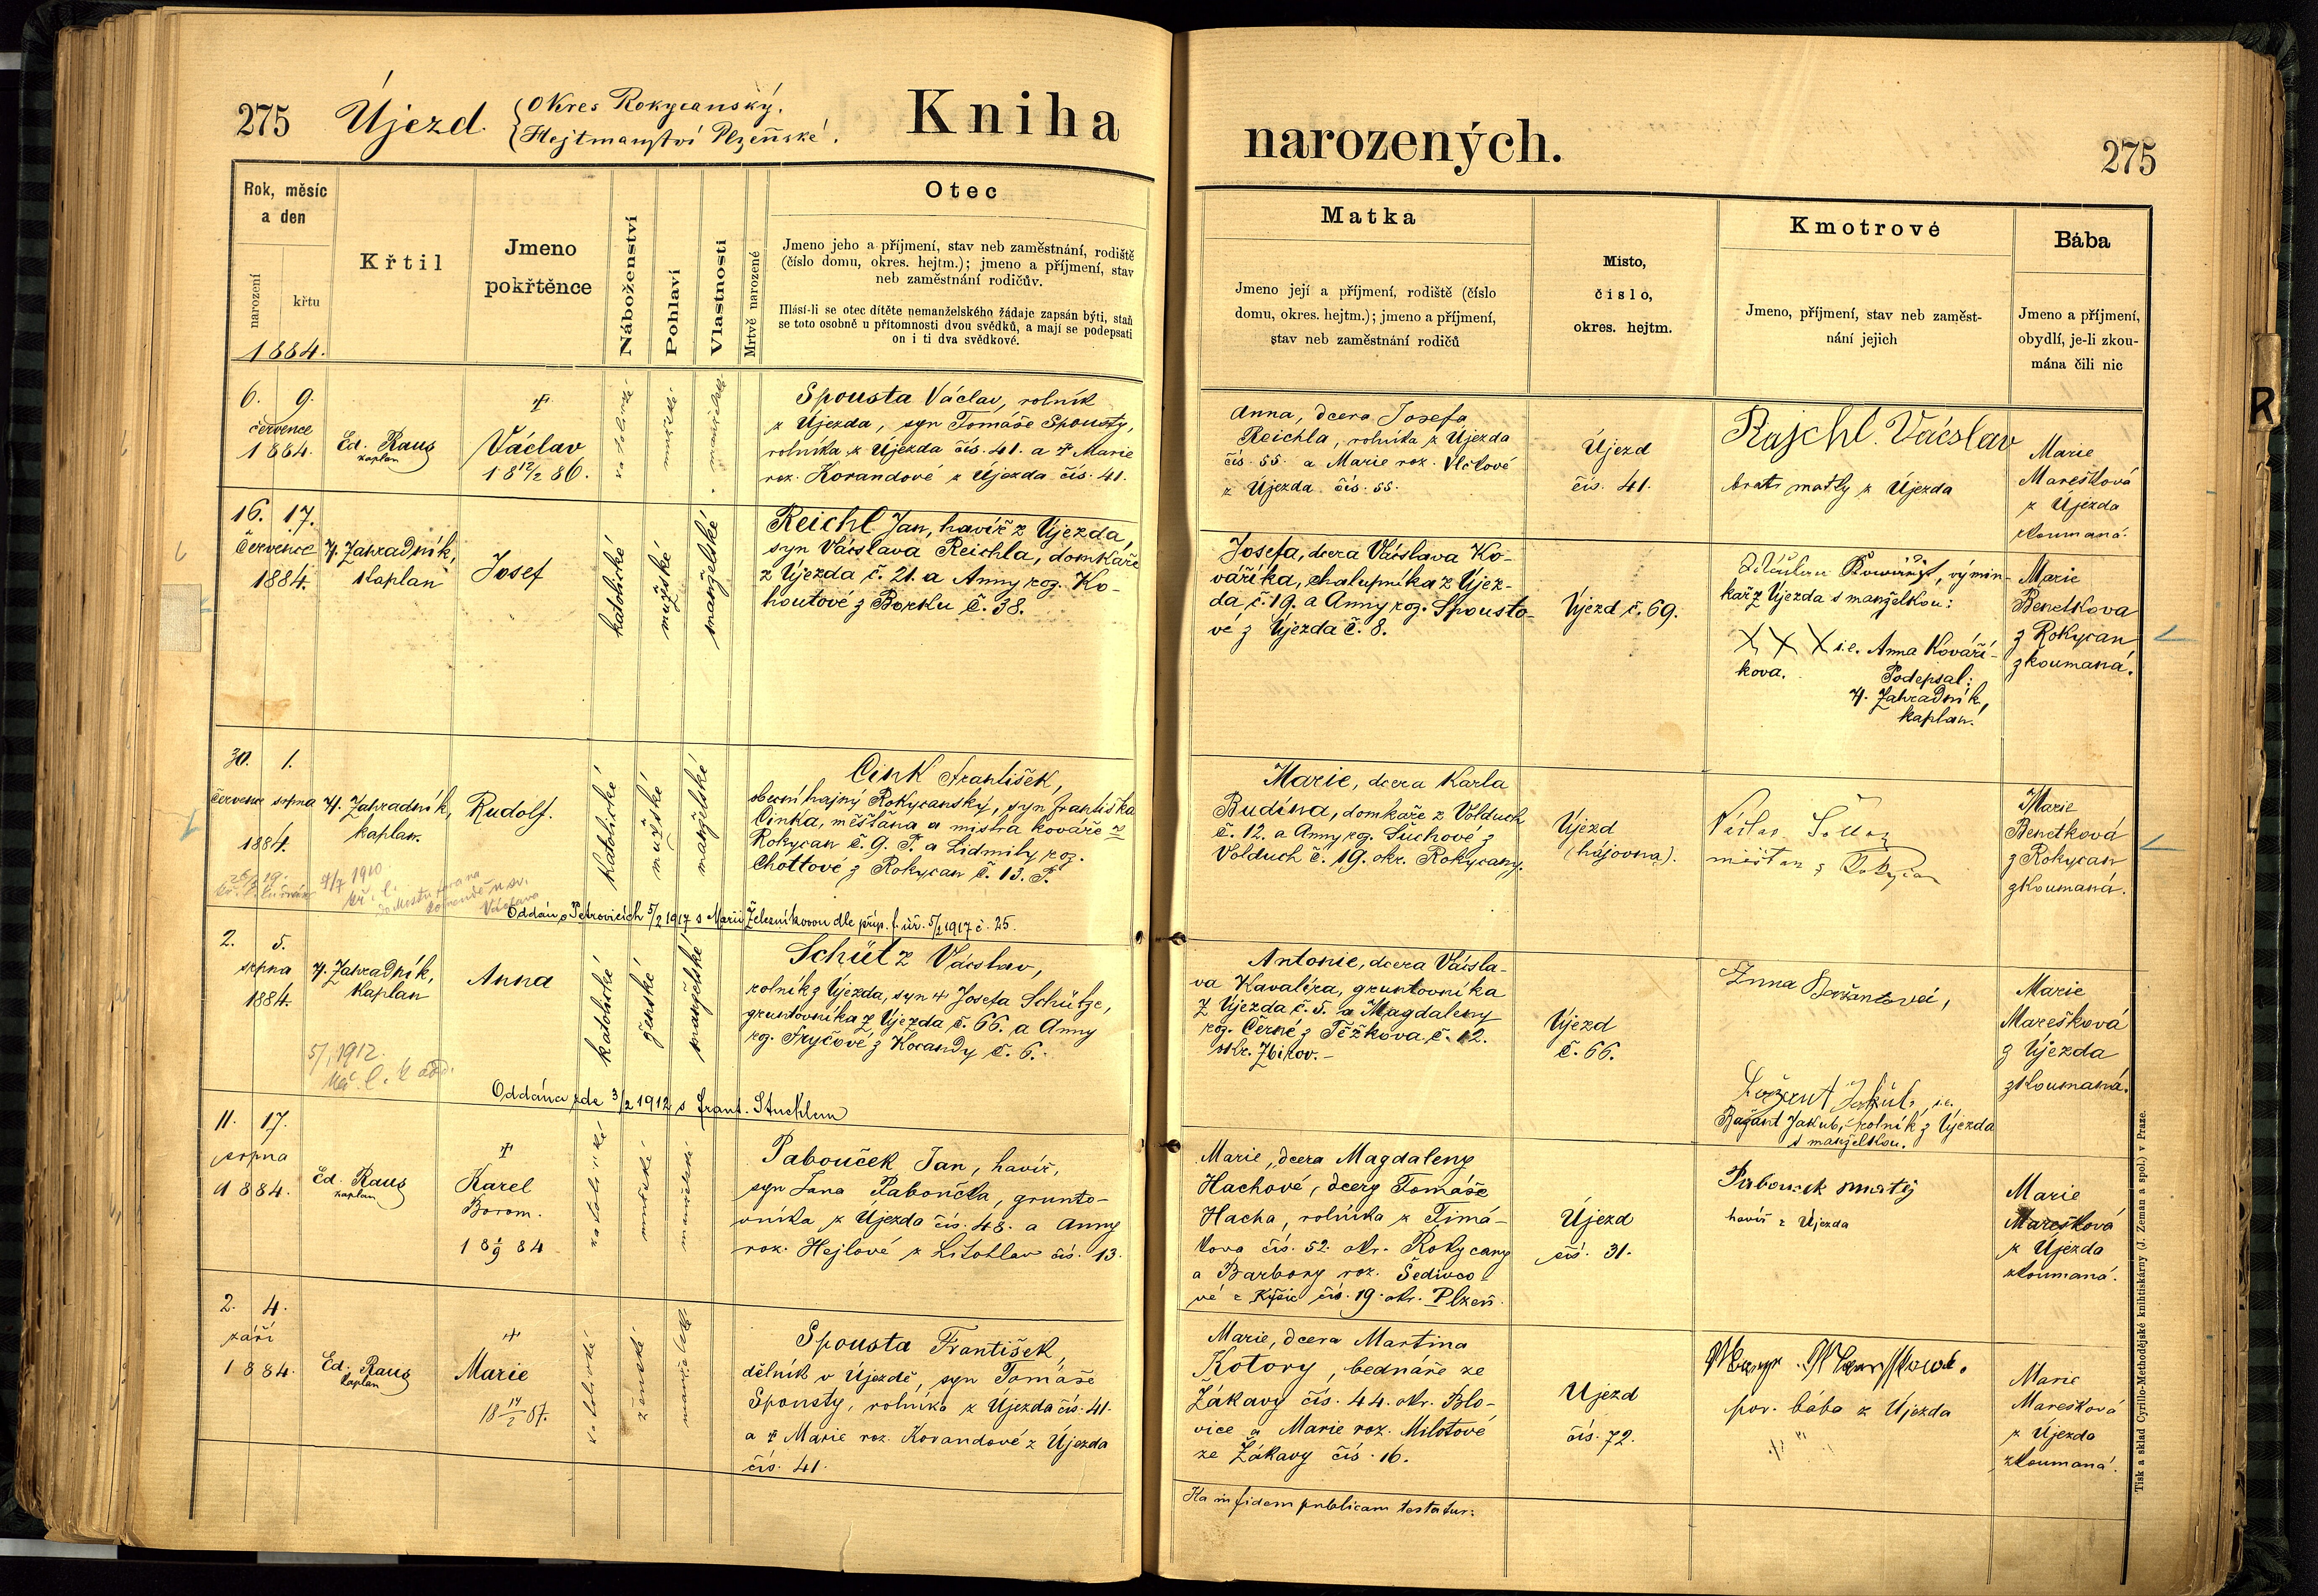 275 Újezd. Okres Rokycanský.
Hejtmanství Plzeňské.
Kniha
narozených.
275
Rok, měsíc
a den
narození
křtu
1884.
Křtil
Jmeno
pokřtěnce
Náboženství
Pohlaví
Vlastnosti
Mrtvě narozené
Otec
Jmeno jeho a příjmení, stav neb zaměstnání, rodiště
(číslo domu, okres. hejtm.); jmeno a příjmení, stav
neb zaměstnání rodičův.
Hlásí-li se otec dítěte nemanželského žádaje zapsán býti, staň
se toto osobně u přítomnosti dvou svědků, a mají se podepsati
on i ti dva svědkové.
Matka
Jmeno její a příjmení, rodiště (číslo
domu, okres. hejtm.); jmeno a příjmení,
stav neb zaměstnání rodičů
Místo,
číslo,
okres. hejtm.
Kmotrové
Jmeno, příjmení, stav neb zaměst-
nání jejich
Bába
Jmeno a příjmení,
obydlí, je-li zkou-
mána čili nic
6. 9.
července
1884.
Ed. Raus
kaplan
Václav
18 12/2 86.
katolické
mužské
manželské
Spousta Václav, rolník
z Újezda, syn Tomáše Spousty,
rolníka z Újezda čís. 41. a † Marie
roz. Korandové z Újezda čís. 41.
Anna, dcera Josefa
Reichla, rolníka z Újezda
čís. 55. a Marie roz. Vlčkové
z Újezda čís. 55.
Újezd
čís. 41.
Rajchl Václav
bratr matky z Újezda
Marie
Marešková
z Újezda
zkoumaná.
16. 17.
července
1884.
J. Zahradník,
kaplan
Josef
katolické
mužské
manželské
Reichl Jan, havíř z Újezda,
syn Václava Reichla, domkáře
z Újezda č. 21. a Anny roz. Ko-
houtové z Borku č. 38.
Josefa, dcera Václava Ko-
váříka, chalupníka z Újez-
da č. 19. a Anny roz. Spousto-
vé z Újezda č. 8.
Újezd č. 69.
výmin-
kář z Újezda s manželkou:
X X X i.e. Anna Kováří-
kova.
Podepsal:
J. Zahradník,
kaplan.
Marie
Benetkova
z Rokycan
zkoumaná.
30. 1.
července srpna
1884.
J. Zahradník,
kaplan.
Rudolf.
katolické
mužské
manželské
Cink František,
obecní hajný Rokycanský, syn Františka
Cinka, měšťana a mistra kováře z
Rokycan č. 9. P. a Lidmily roz.
Chottové z Rokycan č. 13. P.
Marie, dcera Karla
Budína, domkáře z Volduch
č. 12. a Anny roz. Suchové z
Volduch č. 19. okr. Rokycany.
Újezd
(hájovna).
měšťan z Rokycan
Marie
Benetková
z Rokycan
zkoumaná.
4/7 1910
Oddán v Petrovicích 5/2 1917 s Marií Železníkovou dle příp. f. úř. 5/2 1917 č. 25.
2. 5.
srpna
1884.
J. Zahradník,
kaplan
Anna
katolické
ženské
manželské
Schütz Václav,
rolník z Újezda, syn † Josefa Schütze,
gruntovníka z Újezda č. 66. a Anny
roz. Fryčové z Kocandy č. 6.
Antonie, dcera Václa-
va Kavalíra, gruntovníka
z Újezda č. 5. a Magdaleny
roz. Černé z Těžkova č. 12.
okr. Zbirov.
Újezd
č. 66.
Anna Bažantová,
Bažant Jakub, i.e.
Bažant Jakub, rolník z Újezda
s manželkou.
Marie
Marešková
z Újezda
zkoumaná.
5/1 1912.
Oddána zde 3/2 1912 s Frant. Stuchlem
11. 17.
srpna
1884.
Ed. Raus
kaplan
Karel
Borom.
18 1/9 84
katolické
mužské
manželské
Pabouček Jan, havíř,
syn Jana Paboučka, grunto-
vníka z Újezda čís. 48. a Anny
roz. Hejlové z Litohlav čís. 13.
Marie, dcera Magdaleny
Hachové, dcery Tomáše
Hacha, rolníka z Timá-
kova čís. 52. okr. Rokycany
a Barbory roz. Šedivco-
vé z Kyšic čís. 19. okr. Plzeň.
Újezd
čís. 31.
Pabouček Matěj
havíř z Újezda
Marie
Marešková
z Újezda
zkoumaná.
2. 4.
září
1884.
Ed. Raus
kaplan
Marie
18 14/2 87.
katolické
ženské
manželské
Spousta František,
dělník v Újezdě, syn Tomáše
Spousty, rolníka z Újezda čís. 41.
a † Marie roz. Korandové z Újezda
čís. 41.
Marie, dcera Martina
Kotory, bednáře ze
Žákavy čís. 44. okr. Blo-
vice a Marie roz. Milotové
ze Žákavy čís. 16.
Újezd
čís. 72.
por. bába z Újezda
Marie
Marešková
z Újezda
zkoumaná.
Ita in fidem publicam testatur:
Tisk a sklad Cyrillo-Methodějské knihtiskárny (J. Zeman a spol.) v Praze.
R